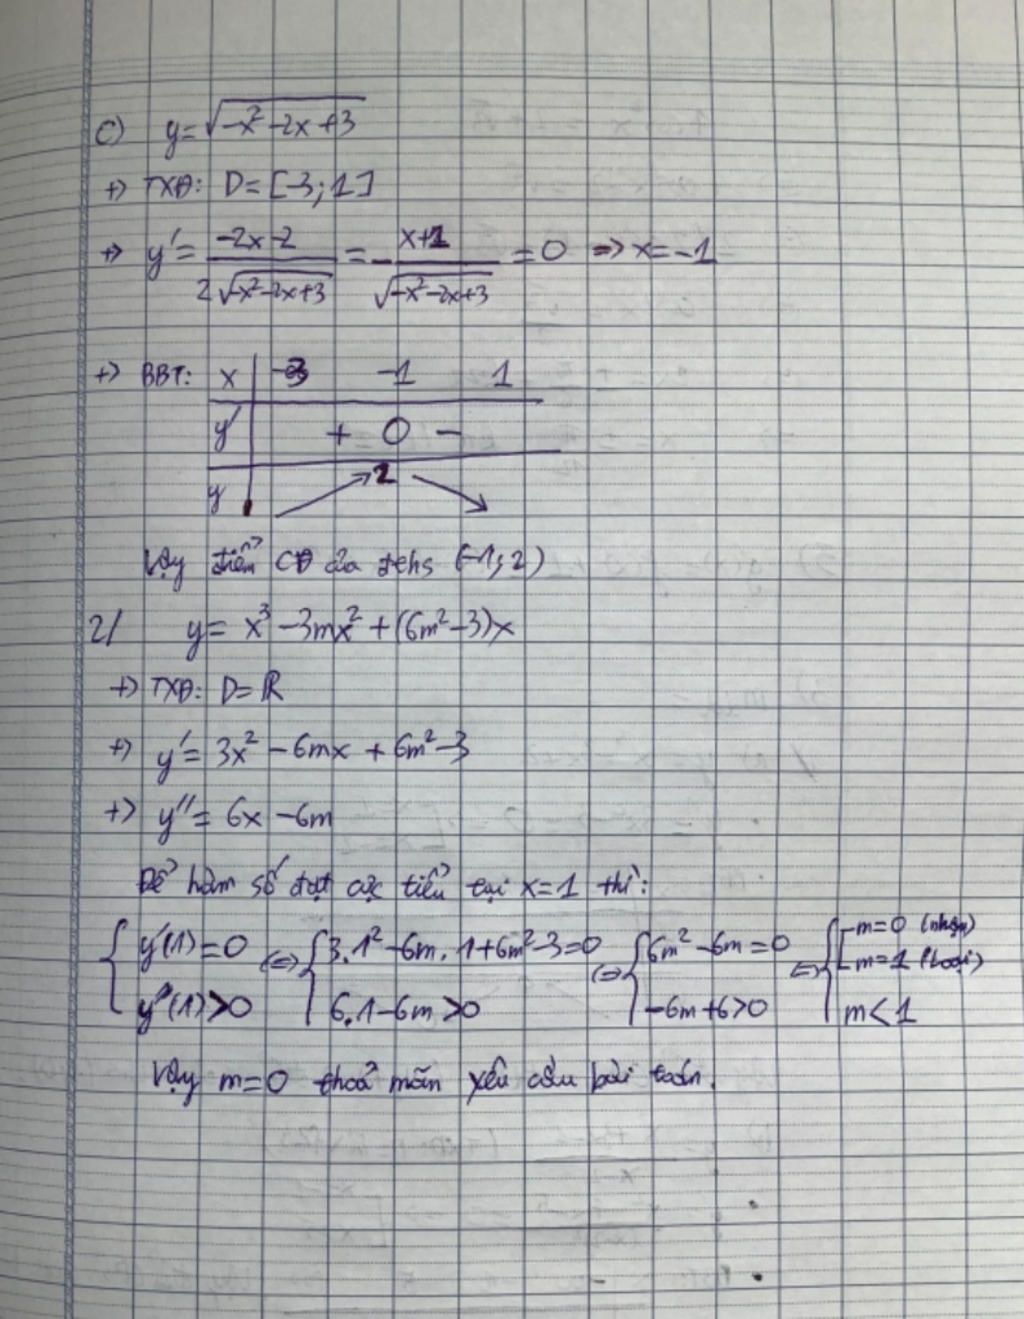 c) y = √(-x² - 2x + 3)
+) TXĐ: D = [-3; 1]
+) y' = (-2x - 2)/(2√(-x² - 2x + 3)) = -(x+1)/√(-x² - 2x + 3) = 0 => x = -1
+) BBT: x | -3 -1 1
y' | + 0 -
y | 2
Vậy điểm CĐ của đths (-1; 2)
2/ y = x³ - 3mx² + (6m² - 3)x
+) TXĐ: D = ℝ
+) y' = 3x² - 6mx + 6m² - 3
+) y'' = 6x - 6m
Để hàm số đạt cực tiểu tại x = 1 thì:
{ y'(1) = 0 <=> { 3.1² - 6m.1 + 6m² - 3 = 0 <=> { 6m² - 6m = 0 <=> { [ m = 0 (nhận)
m = 1 (loại)
y''(1) > 0 6.1 - 6m > 0 -6m + 6 > 0 m < 1
Vậy m = 0 thoả mãn yêu cầu bài toán.